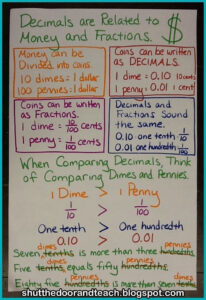 Decimals are Related to
Money and Fractions. $
Money can be
Divided into coins.
10 dimes = 1 dollar
100 pennies = 1 dollar
Coins can be written
as DECIMALS.
1 dime = 0.10 10 cents
1 penny = 0.01 1 cent
Coins can be written
as Fractions.
1 dime = 10/100 cents
1 penny = 1/100 cents
Decimals and
Fractions Sound
the same.
0.10 one tenth 1/10
0.01 one hundredth 1/100
When Comparing Decimals, Think of
Comparing Dimes and Pennies.
1 Dime > 1 Penny
1/10 > 1/100
One tenth > One hundredth
0.10 > 0.01
dimes pennies
Seven tenths is more than three hundredths
dimes pennies
Five tenths equals fifty hundredths.
pennies dimes
Eighty five hundredths is more than seven tenths
shutthedoorandteach.blogspot.com